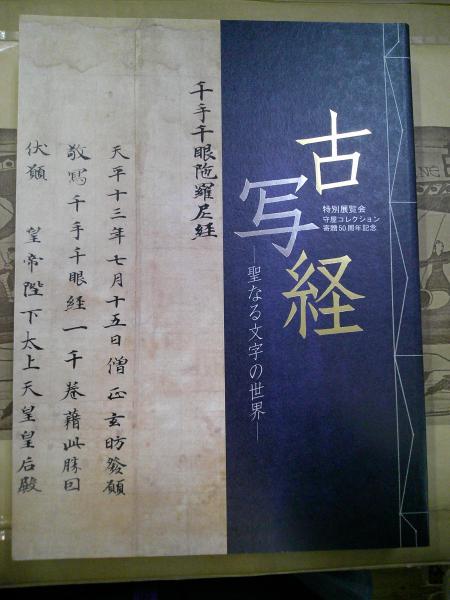 古写経
特別展覧会
守屋コレクション
寄贈50周年記念
―聖なる文字の世界―
千手千眼陀羅尼経
天平十三年七月十五日僧正玄昉發願
敬寫千手千眼經一千卷藉此勝因
伏願 皇帝陛下太上天皇皇后殿